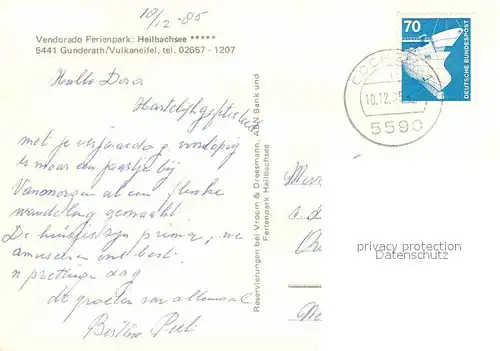 10/12 -85
Vendorado Ferienpark: Heilbachsee *****
5441 Gunderath/Vulkaneifel, tel. 02657 - 1207
Hallo Dora
Hartelijk gefeliciteerd
met je verjaardag, voorlopig
maar een kaartje bij
Vanmorgen al een flinke
wandeling gemaakt.
De huisjes zijn prima, we
amuseren ons best.
n prettige dag
de groeten van allemaal
Reservierungen bei Vroom & Dreesmann, ABN Bank und
Ferienpark Heilbachsee
70
DEUTSCHE BUNDESPOST
COCHEM
10.12.85
5590
privacy protection
Datenschutz